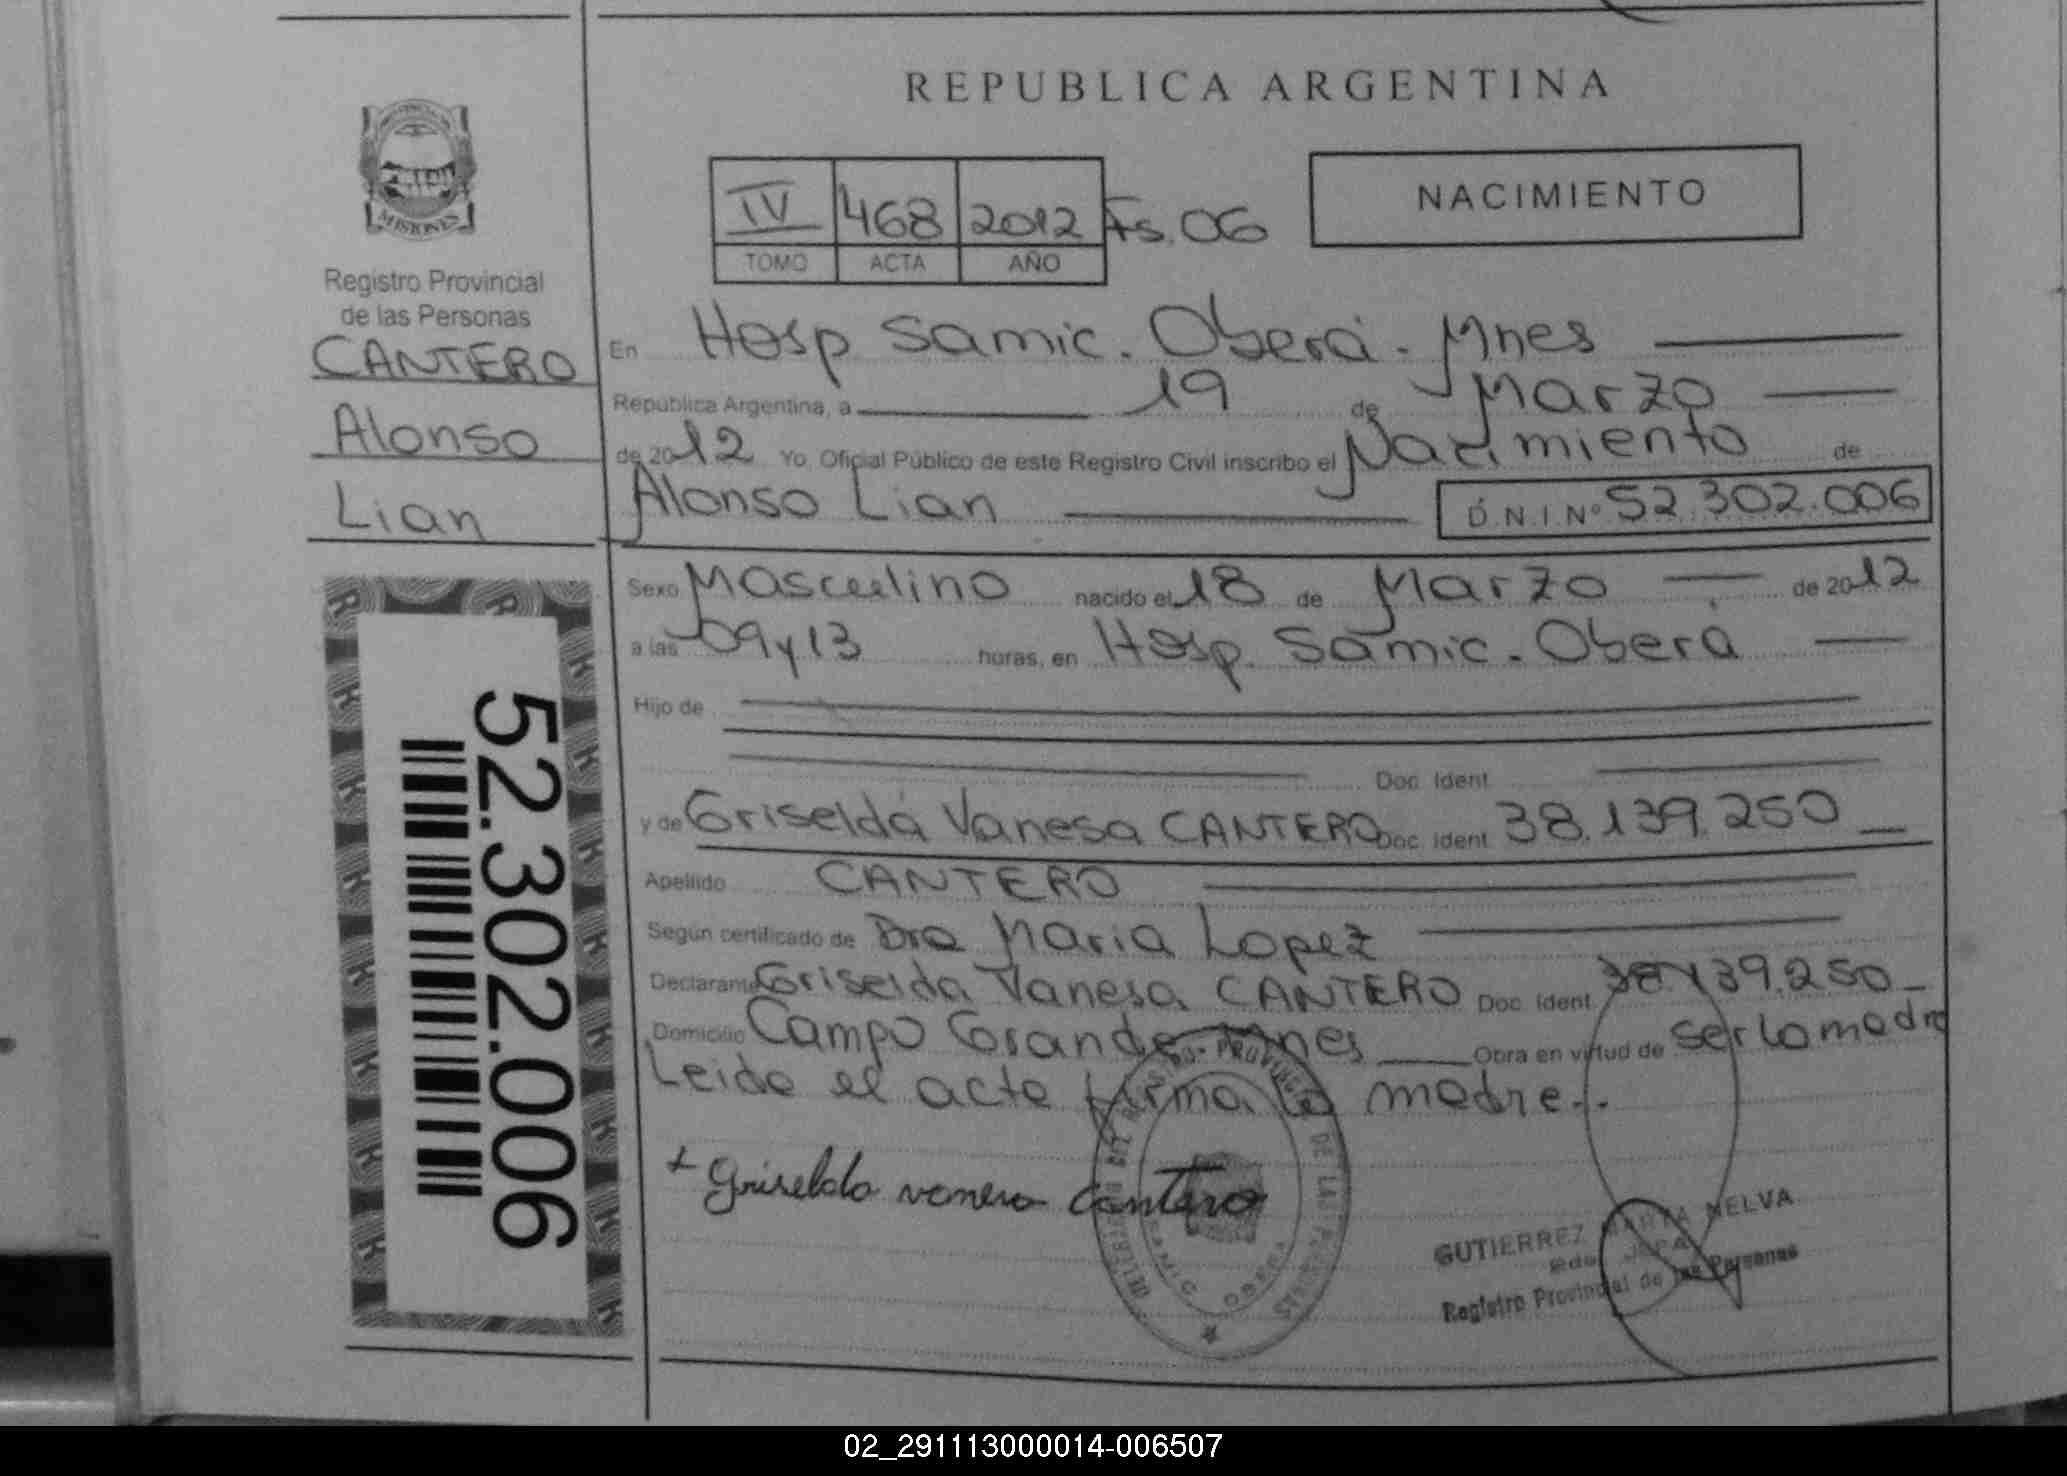 REPUBLICA ARGENTINA
MISIONES
Registro Provincial
de las Personas
CANTERO
Alonso
Lian
52.302.006
IV 468 2012 Fs. 06
TOMO ACTA AÑO
NACIMIENTO
En Hosp Samic. Oberá. Mnes
República Argentina, a 19 de Marzo
de 2012 Yo, Oficial Público de este Registro Civil inscribo el Nacimiento de
Alonso Lian D.N.I Nº 52.302.006
Sexo Masculino nacido el 18 de Marzo de 2012
a las 09 y 13 horas, en Hosp. Samic. Oberá
Hijo de
Doc. Ident.
y de Griselda Vanesa CANTERO Doc. Ident. 38.139.250
Apellido CANTERO
Según certificado de Dra Maria Lopez
Declarante Griselda Vanesa CANTERO Doc. Ident. 38.139.250
Domicilio Campo Grande Mnes Obra en virtud de ser la madre
Leida el acta firma la madre..
+ Griselda vanesa Cantero
PROVINCIAL DE LAS PERSONAS
SAMIC OBERA
GUTIERREZ MARTA NELVA
Registro Provincial de las Personas
02_291113000014-006507